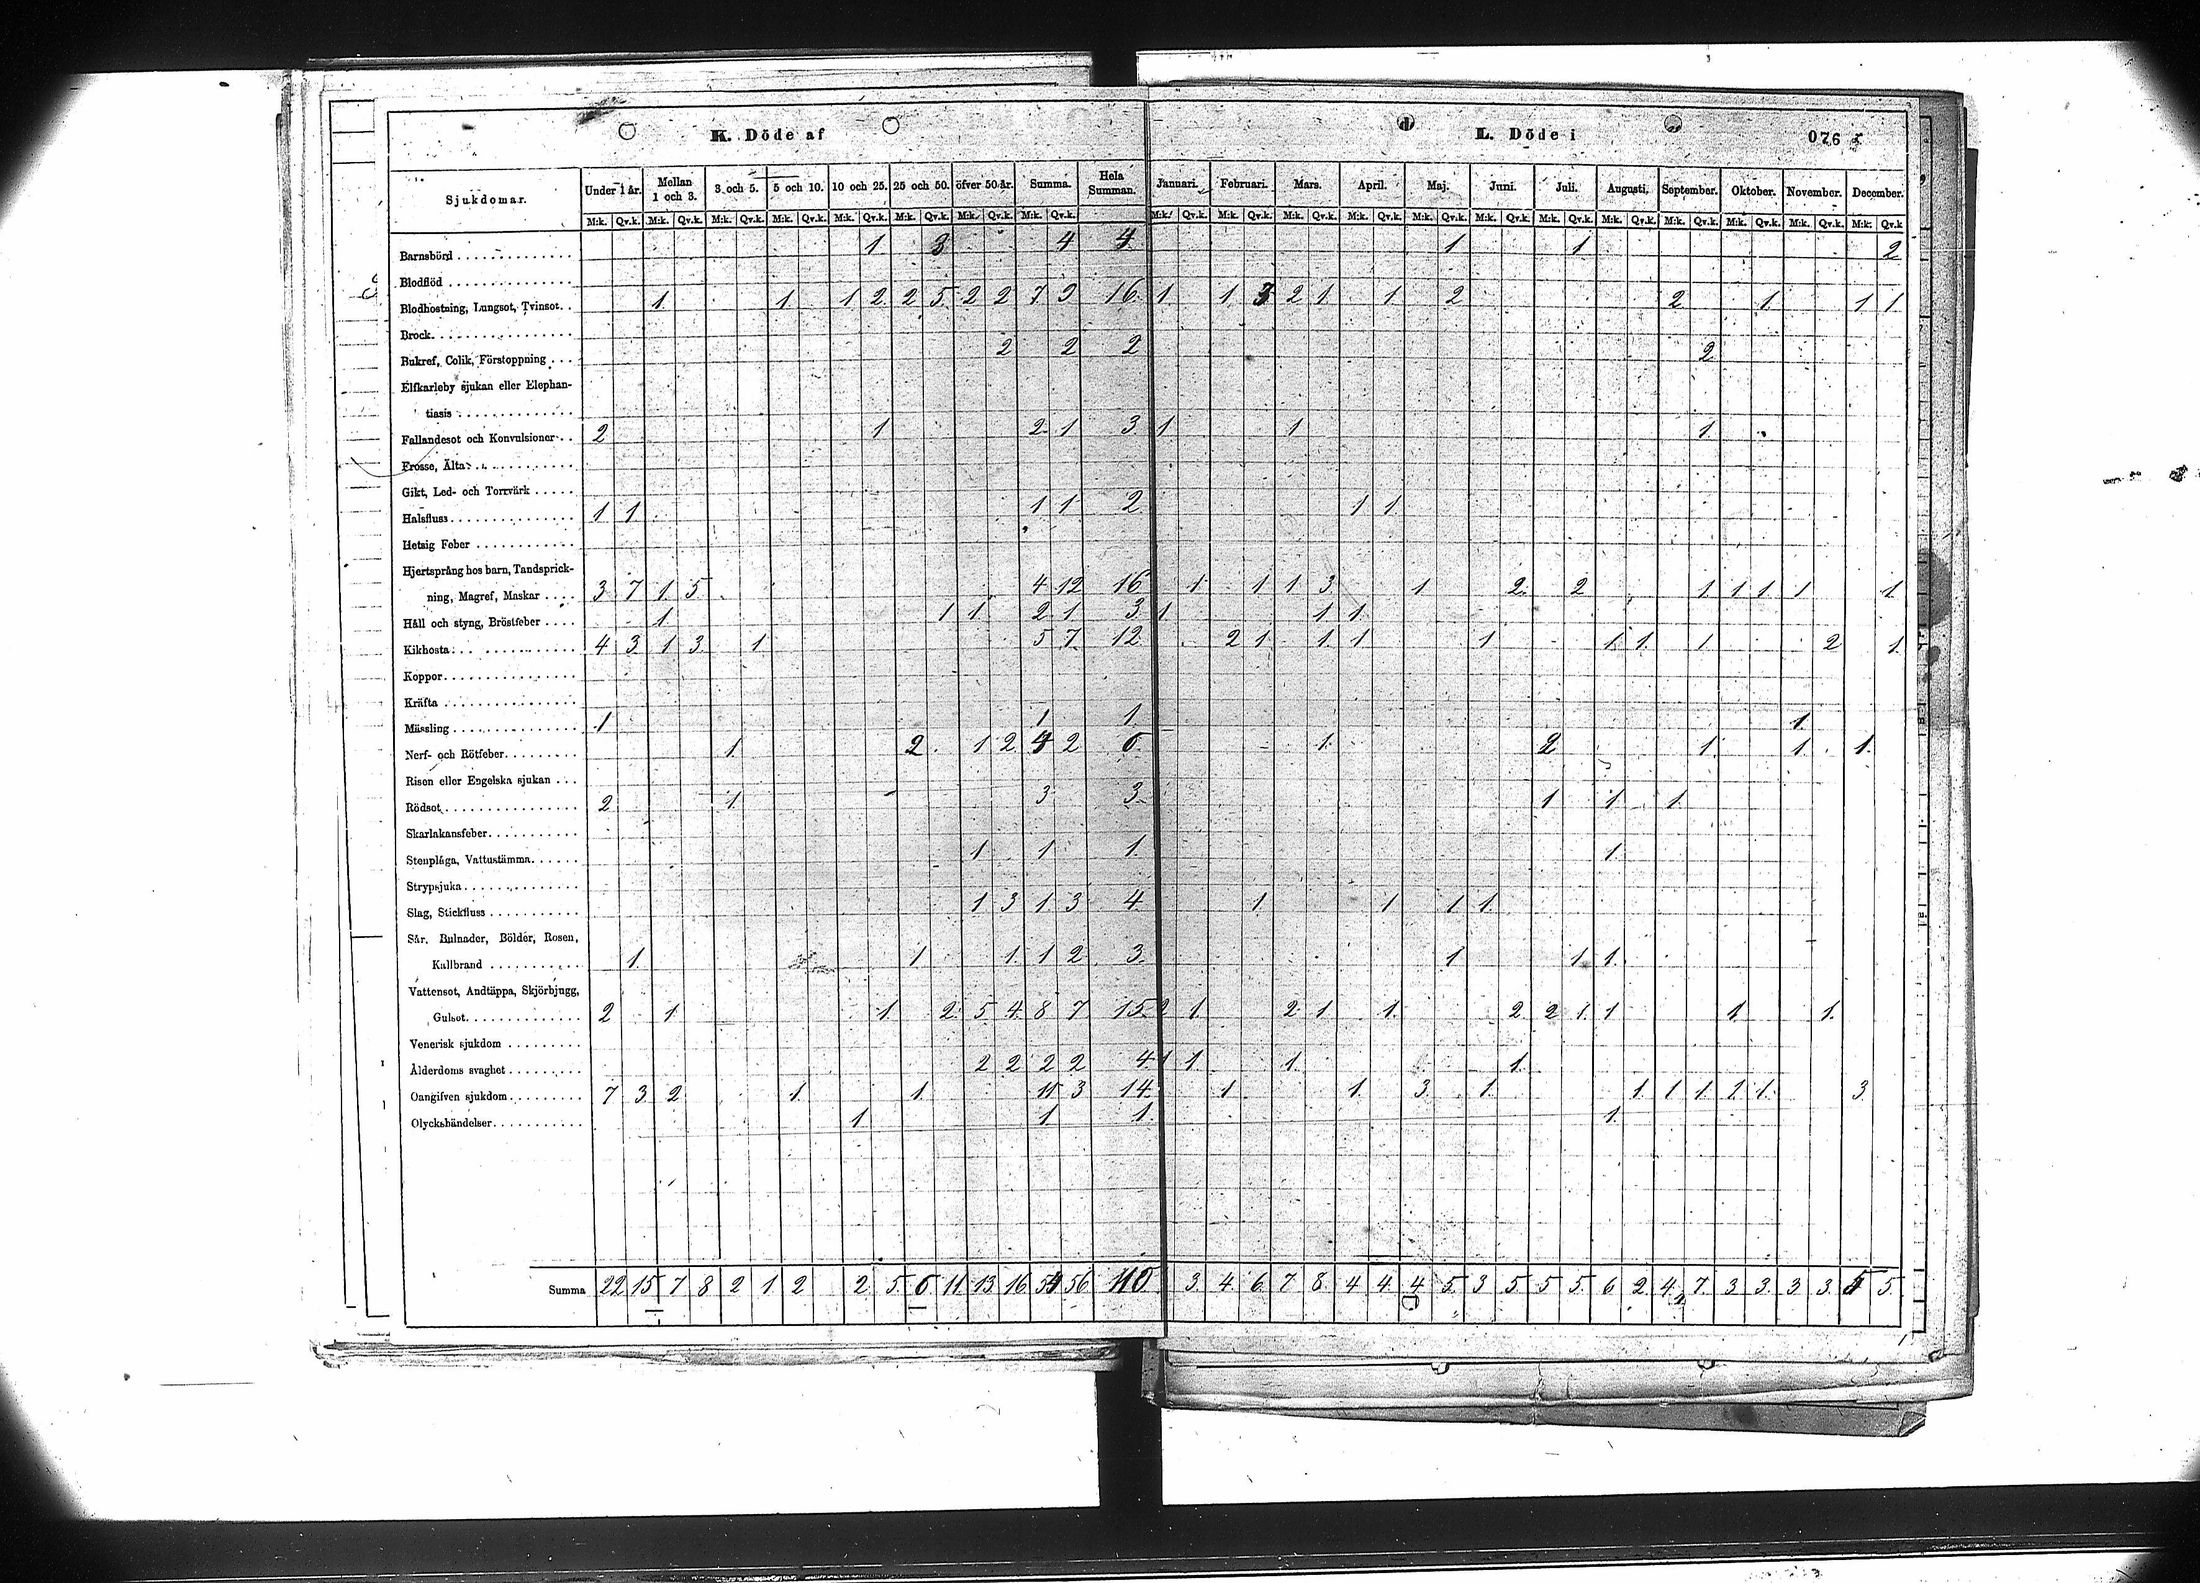 K. Döde af
L. Döde i 076
Sjukdomar. Under 1 år. Mellan 1 och 3. 3 och 5. 5 och 10. 10 och 25. 25 och 50. öfver 50 år. Summa. Hela Summan. Januari. Februari. Mars. April. Maj. Juni. Juli. Augusti. September. Oktober. November. December.
M:k. Qv.k. M:k. Qv.k. M:k. Qv.k. M:k. Qv.k. M:k. Qv.k. M:k. Qv.k. M:k. Qv.k. M:k. Qv.k. M:k. Qv.k. M:k. Qv.k. M:k. Qv.k. M:k. Qv.k. M:k. Qv.k. M:k. Qv.k. M:k. Qv.k. M:k. Qv.k. M:k. Qv.k. M:k. Qv.k. M:k. Qv.k. M:k. Qv.k
Barnsbörd 1 3 4 4 1 1 2
Blodflöd
Blodhostning, Lungsot, Tvinsot. 1 1 1 2 2 5 2 2 7 9 16 1 1 3 2 1 1 2 2 1 1 1
Brock
Bukref, Colik, Förstoppning 2 2 2 2
Elfkarleby sjukan eller Elephan-
tiasis
Fallandesot och Konvulsioner 2 1 2 1 3 1 1 1
Frosse, Älta
Gikt, Led- och Torrvärk
Halsfluss 1 1 1 1 2 1 1
Hetsig Feber
Hjertsprång hos barn, Tandsprick-
ning, Magref, Maskar 3 7 1 5 4 12 16 1 1 1 3 1 2 2 1 1 1 1 1
Håll och styng, Bröstfeber 1 1 1 2 1 3 1 1 1
Kikhosta 4 3 1 3 1 5 7 12 2 1 1 1 1 1 1 1 2 1
Koppor
Kräfta
Mässling 1 1 1 1
Nerf- och Rötfeber 1 2 1 2 4 2 6 1 2 1 1 1
Risen eller Engelska sjukan
Rödsot 2 1 3 3 1 1 1
Skarlakansfeber
Stenplåga, Vattustämma 1 1 1 1
Strypsjuka
Slag, Stickfluss 1 3 1 3 4 1 1 1 1
Sår, Bulnader, Bölder, Rosen,
Kallbrand 1 1 1 1 2 3 1 1 1
Vattensot, Andtäppa, Skjörbjugg,
Gulsot 2 1 1 2 5 4 8 7 15 2 1 2 1 1 2 2 1 1 1 1
Venerisk sjukdom
Ålderdoms svaghet 2 2 2 2 4 1 1 1 1
Oangifven sjukdom 7 3 2 1 1 11 3 14 1 1 3 1 1 1 1 1 1 3
Olyckshändelser 1 1 1 1
Summa 22 15 7 8 2 1 2 2 5 6 11 13 16 54 56 110 3 4 6 7 8 4 4 4 5 3 5 5 5 6 2 4 7 3 3 3 3 5 5